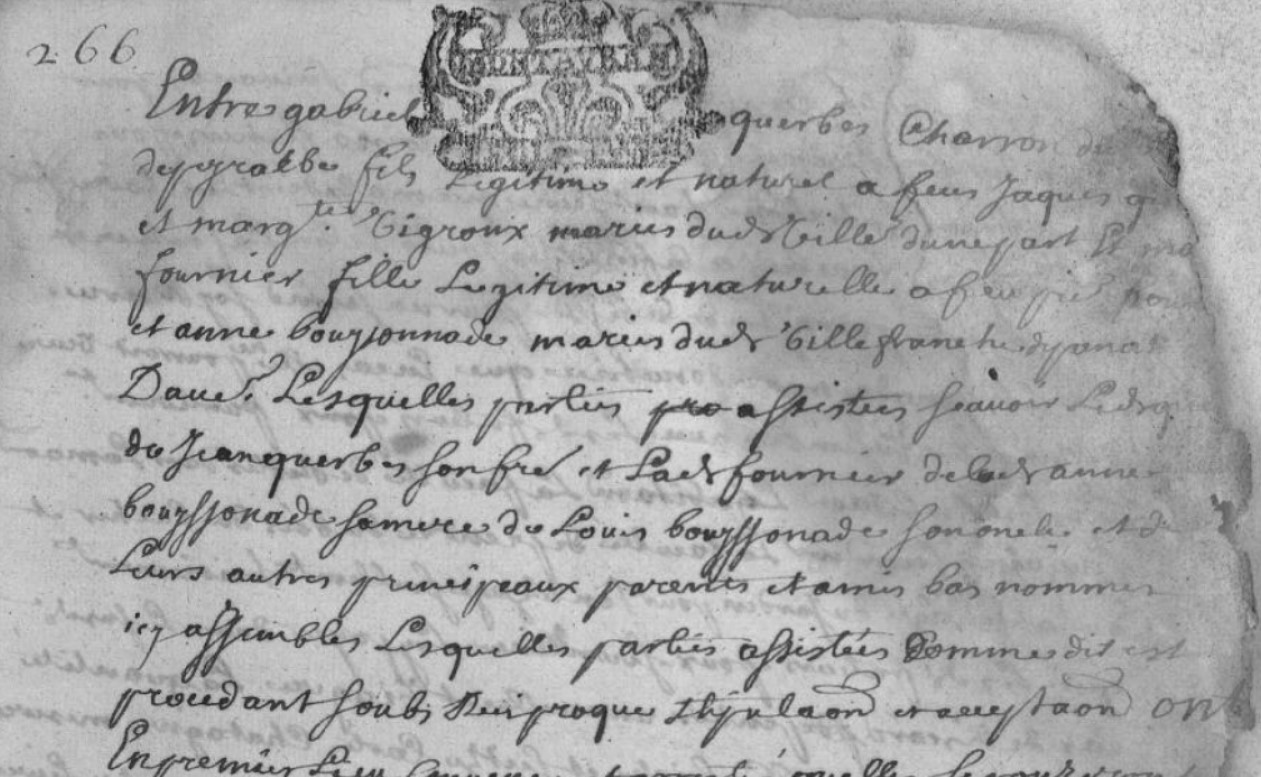 266
MONTAUBAN
Entre gabriel querbes Charron de
depyralbe fils Legitime et naturel a feus Jaques q
et margte. Vigroux maries dudt Ville dunepart Et ma
fournier fille Legitime et naturelle a feu pie
et anne bouyssonnade maries dudt Villefranche
Dauẽ. Lesquelles parties assistées scavoir Ledt
de Jean querbes son fre et Ladt fournier deladt anne
bouyssonade samere de Louis bouyssonade son oncle et d
Leurs autres principeaux parents et amis bas nommes
icy assembles Lesquelles parties assistées Comme dit est
procedant soubs Reciproque stipulaon et acceptaon ont
En premier Lieu